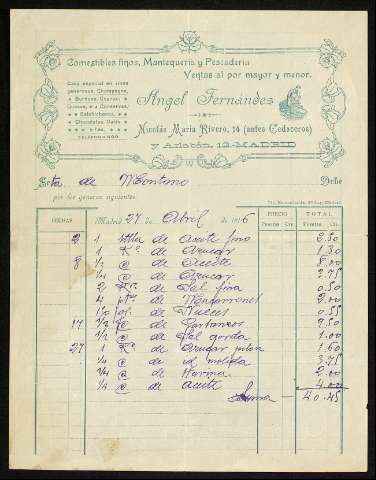 Comestibles finos, Mantequería y Pescadería
Ventas al por mayor y menor.
Casa especial en vinos
generosos, Champagne,
Burdeos, Cognac,
Quesos, Conservas,
Salchichones,
Chocolates, Cafés
y tés.
Angel Fernández
Nicolás María Rivero, 14 (antes Cedaceros)
y Arlabán, 12-MADRID
Srta. de Montano Debe
por los géneros siguientes.
FECHAS Madrid 27 de Abril de 1916 PRECIO TOTAL
Pesetas Cts. Pesetas Cts.
2 1 de Aceite fino 2.50
1 K.º de Azucar 1.30
8 1/2 @ de Aceite 8.00
1/4 @ de Azucar 2.75
2 K.º de Sal fina 0.50
4 de Macarrones 2.00
de Nueces 0.55
17 1/2 @ de Garbanzos 9.50
1/2 @ de Sal gorda 1.00
27 1 K.º de Azucar pilon 1.60
1/4 @ de id molida 3.75
1/4 @ de Harina 2.00
1/4 @ de aceite 4.00
Suma 40.45